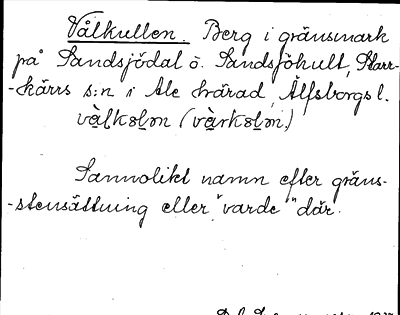 Vålkullen. Berg i gränsmark
på Sandsjödal ö. Sandsjöhult, Starr-
-kärrs s:n i Ale härad, Älfsborgs l.
Sannolikt namn efter gräns-
-stensättning eller "varde" där.